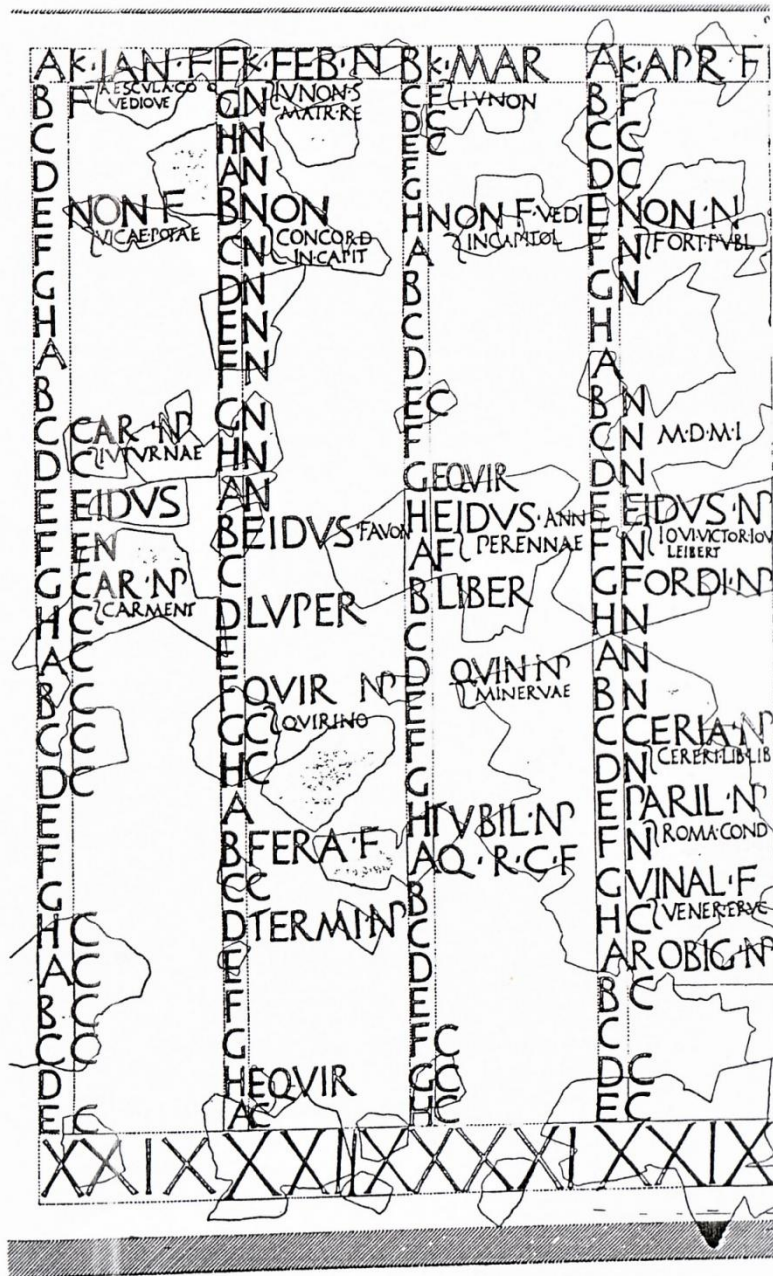 A K·IAN·F
B F AESCVLA·CO
VEDIOVE
C
D
E NON F
VICAE·POTAE
F
G
H
A
B
C CAR·NP
D C IVTVRNAE
E EIDVS
F EN
G CAR·NP
H C CARMENT
A C
B C
C C
D C
E
F
G
H C
A C
B C
C C
D
E C
XXIX
F K·FEB·N
G N IVNON·S
MATR·RE
H N
A N
B NON
C N CONCORD
IN·CAPIT
D N
E N
F N
G N
H N
A N
B EIDVS·FAVON
C
D LVPER
E
F QVIR NP
G C QVIRINO
H C
A
B FERA·F
C C
D TERMI NP
E
F
G
H EQVIR
A C
XXIIX
B K·MAR
C F IVNON
D C
E C
F
G
H NON F·VEDI
A IN CAPITOL
B
C
D
E C
F
G EQVIR
H EIDVS·ANN
A F PERENNAE
B LIBER
C
D QVIN NP
E MINERVAE
F
G
H TVBIL·NP
A Q·R·C·F
B
C
D
E
F C
G C
H C
XXXI
A K·APR·F
B F
C C
D C
E NON·N
F N FORT·PVBL
G N
H
A
B N
C N M·D·M·I
D N
E EIDVS·NP
F N IOVI·VICTOR·IOV
LEIBERT
G FORDI·NP
H N
A N
B N
C CERIA·NP
D N CERERI·LIB·LIB
E PARIL·NP
F N ROMA·COND
G VINAL·F
H C VENER·ERVC
A ROBIG·NP
B C
C
D C
E C
XXIX